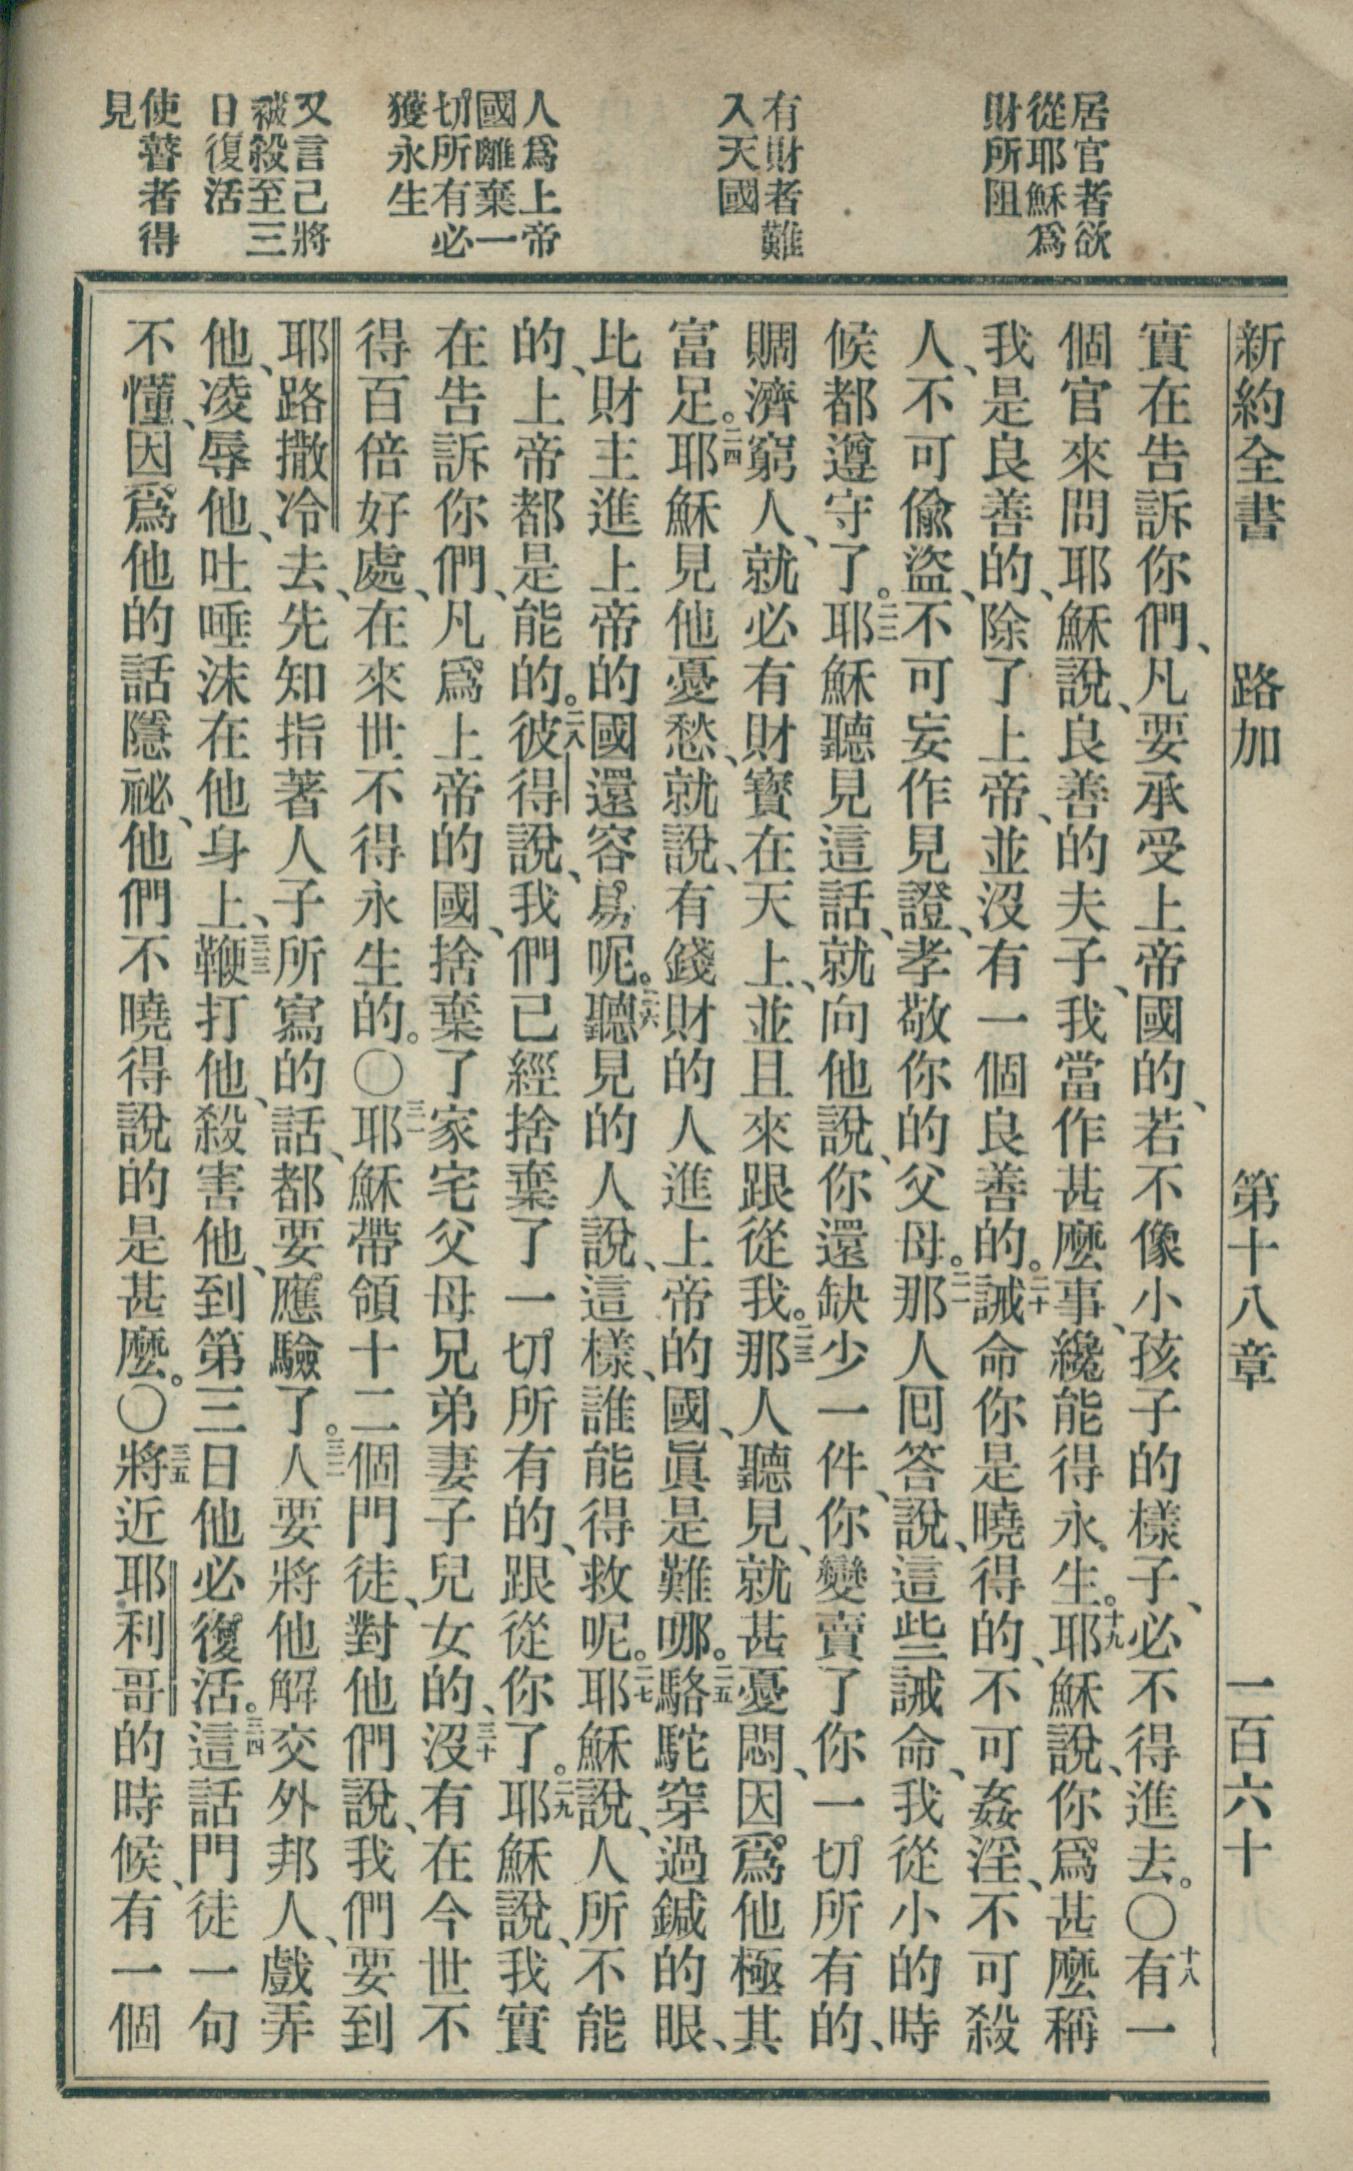 居官者欲
從耶穌爲
財所阻
有財者難
入天國
人爲上帝
國離棄一
切所有必
獲永生
又言己將
被殺至三
日復活
使瞽者得
見
新約全書 路加 第十八章 一百六十
實在告訴你們、凡要承受上帝國的、若不像小孩子的樣子、必不得進去。〇十八有一
個官來問耶穌說、良善的夫子、我當作甚麼事、纔能得永生。十九耶穌說、你爲甚麼稱
我是良善的、除了上帝、並沒有一個良善的。二十誡命你是曉得的、不可姦淫、不可殺
人、不可偸盜、不可妄作見證、孝敬你的父母。二一那人囘答說、這些誡命、我從小的時
候都遵守了。二二耶穌聽見這話、就向他說、你還缺少一件、你變賣了你一切所有的、
賙濟窮人、就必有財寶在天上、並且來跟從我。二三那人聽見、就甚憂悶、因爲他極其
富足。二四耶穌見他憂愁、就說、有錢財的人進上帝的國、眞是難哪。二五駱駝穿過鍼的眼、
比財主進上帝的國還容易呢。二六聽見的人說、這樣、誰能得救呢。二七耶穌說、人所不能
的、上帝都是能的。二八彼得說、我們已經捨棄了一切所有的、跟從你了。二九耶穌說、我實
在告訴你們、凡爲上帝的國、捨棄了家宅父母兄弟妻子兒女的、三十沒有在今世不
得百倍好處、在來世不得永生的。〇三一耶穌帶領十二個門徒、對他們說、我們要到
耶路撒冷去、先知指著人子所寫的話、都要應驗了。三二人要將他解交外邦人、戲弄
他、凌辱他、吐唾沫在他身上、三三鞭打他、殺害他、到第三日他必復活。三四這話門徒一句
不懂、因爲他的話隱祕、他們不曉得說的是甚麼。〇三五將近耶利哥的時候、有一個